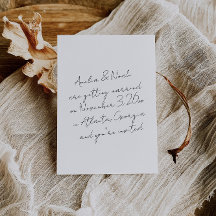 Amelia & Noah
are getting married
on November 3, 2620
in Atlanta, Georgia
and you're invited